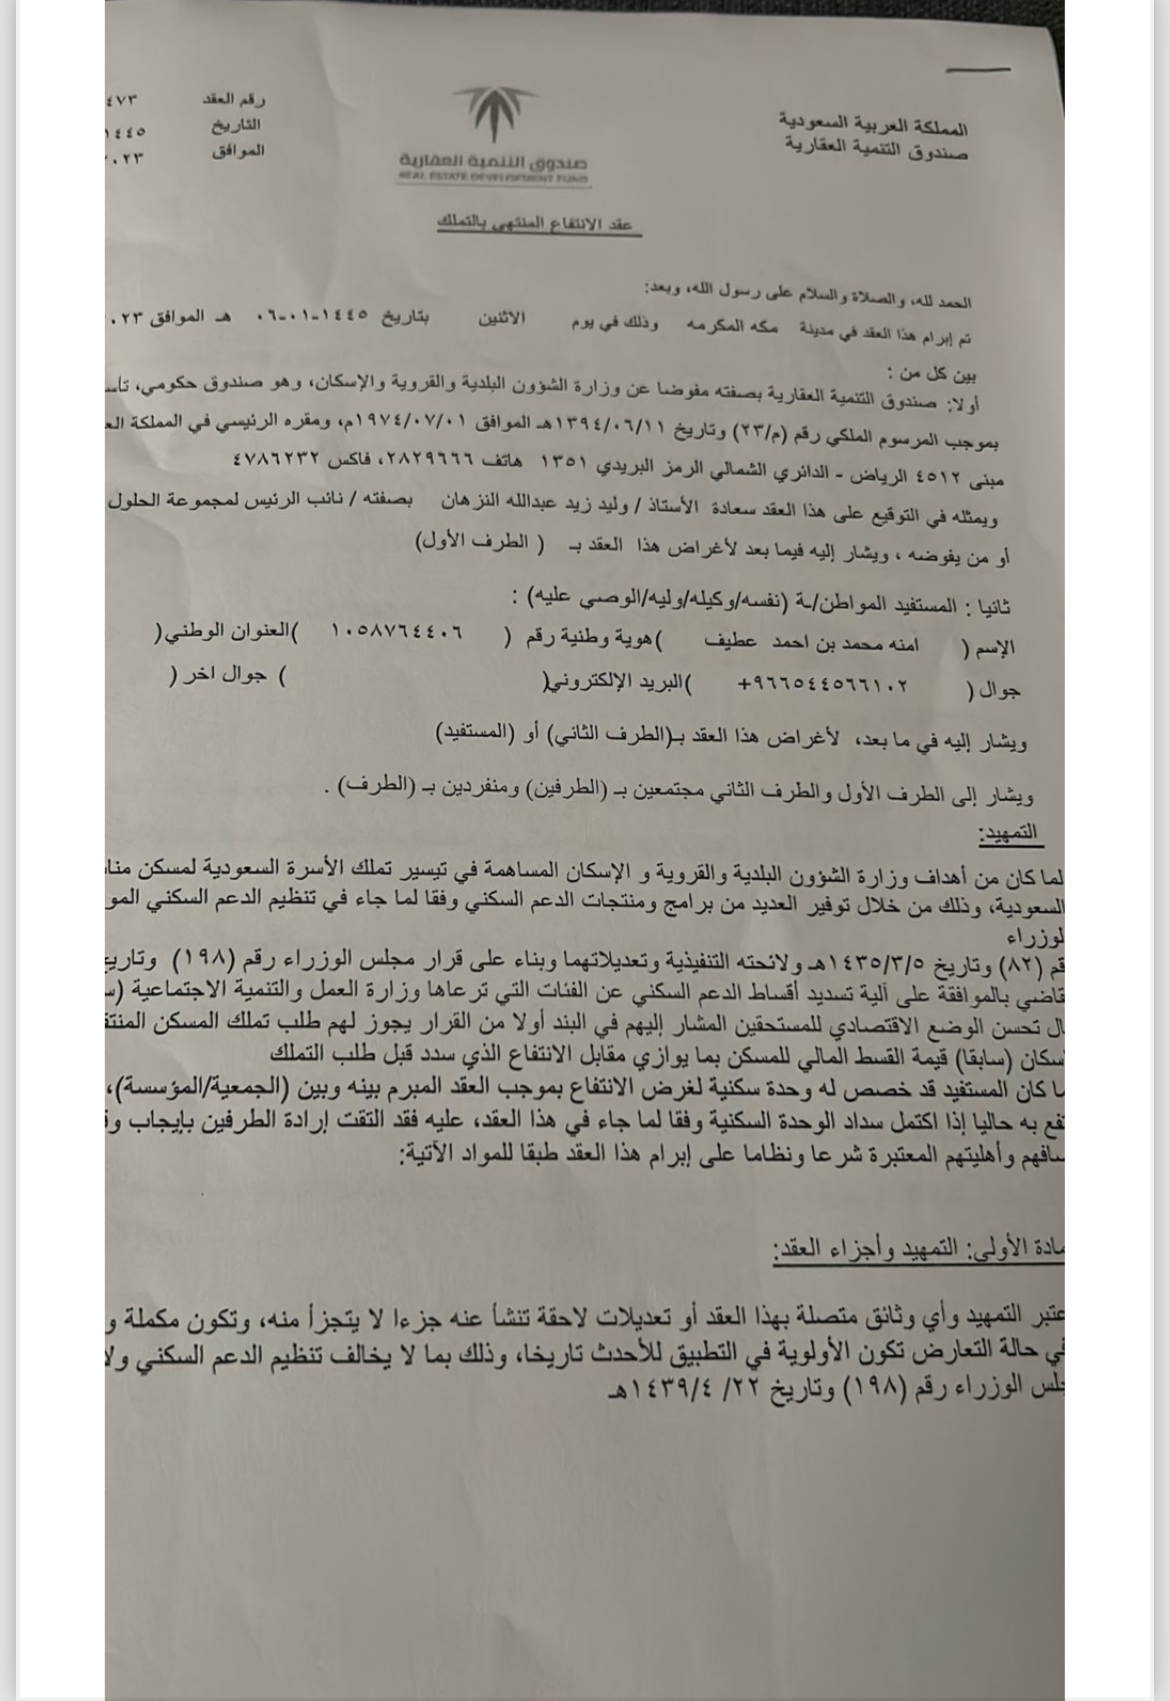 المملكة العربية السعودية
صندوق التنمية العقارية
صندوق التنمية العقارية
REAL ESTATE DEVELOPMENT FUND
رقم العقد ٤٧٣
التاريخ ١٤٤٥
الموافق ٠٢٣
عقد الانتفاع المنتهي بالتملك
الحمد لله، والصلاة والسلام على رسول الله، وبعد:
تم إبرام هذا العقد في مدينة مكه المكرمه وذلك في يوم الاثنين بتاريخ ١٤٤٥-٠١-٠٦ هـ الموافق ٠٢٣
بين كل من :
أولا: صندوق التنمية العقارية بصفته مفوضا عن وزارة الشؤون البلدية والقروية والإسكان، وهو صندوق حكومي، تأس
بموجب المرسوم الملكي رقم (م/٢٣) وتاريخ ١٣٩٤/٠٦/١١هـ الموافق ١٩٧٤/٠٧/٠١م، ومقره الرئيسي في المملكة الع
مبنى ٤٥١٢ الرياض - الدائري الشمالي الرمز البريدي ١٣٥١ هاتف ٢٨٢٩٦٦٦، فاكس ٤٧٨٦٢٣٢
ويمثله في التوقيع على هذا العقد سعادة الأستاذ / وليد زيد عبدالله النزهان بصفته / نائب الرئيس لمجموعة الحلول
أو من يفوضه ، ويشار إليه فيما بعد لأغراض هذا العقد بـ ( الطرف الأول)
ثانيا : المستفيد المواطن/ـة (نفسه/وكيله/وليه/الوصي عليه) :
الإسم ( امنه محمد بن احمد عطيف )هوية وطنية رقم ( ١٠٥٨٧٦٤٤٠٦ )العنوان الوطني(
جوال ( ٩٦٦٥٤٤٥٦٦١٠٢+ )البريد الإلكتروني( ) جوال اخر (
ويشار إليه في ما بعد، لأغراض هذا العقد بـ(الطرف الثاني) أو (المستفيد)
ويشار إلى الطرف الأول والطرف الثاني مجتمعين بـ (الطرفين) ومنفردين بـ (الطرف) .
التمهيد:
لما كان من أهداف وزارة الشؤون البلدية والقروية و الإسكان المساهمة في تيسير تملك الأسرة السعودية لمسكن منا
السعودية، وذلك من خلال توفير العديد من برامج ومنتجات الدعم السكني وفقا لما جاء في تنظيم الدعم السكني المو
لوزراء
قم (٨٢) وتاريخ ١٤٣٥/٣/٥هـ ولائحته التنفيذية وتعديلاتهما وبناء على قرار مجلس الوزراء رقم (١٩٨) وتاريخ
قاضي بالموافقة على آلية تسديد أقساط الدعم السكني عن الفئات التي ترعاها وزارة العمل والتنمية الاجتماعية (س
ال تحسن الوضع الاقتصادي للمستحقين المشار إليهم في البند أولا من القرار يجوز لهم طلب تملك المسكن المنتف
سكان (سابقا) قيمة القسط المالي للمسكن بما يوازي مقابل الانتفاع الذي سدد قبل طلب التملك
ما كان المستفيد قد خصص له وحدة سكنية لغرض الانتفاع بموجب العقد المبرم بينه وبين (الجمعية/المؤسسة)،
تفع به حاليا إذا اكتمل سداد الوحدة السكنية وفقا لما جاء في هذا العقد، عليه فقد التقت إرادة الطرفين بإيجاب وق
سافهم وأهليتهم المعتبرة شرعا ونظاما على إبرام هذا العقد طبقا للمواد الآتية:
مادة الأولى: التمهيد وأجزاء العقد:
عتبر التمهيد وأي وثائق متصلة بهذا العقد أو تعديلات لاحقة تنشأ عنه جزءا لا يتجزأ منه، وتكون مكملة و
في حالة التعارض تكون الأولوية في التطبيق للأحدث تاريخا، وذلك بما لا يخالف تنظيم الدعم السكني ولا
جلس الوزراء رقم (١٩٨) وتاريخ ٢٢/ ١٤٣٩/٤هـ